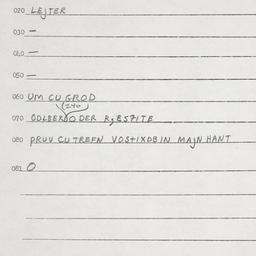 020 LEJTER
030 —
040 —
050 —
060 UM CU GROD
(240)
070 ODLBER O DER
080 PRUV CU TREFN VOSTIXDBIN MAJN HANT
082 O